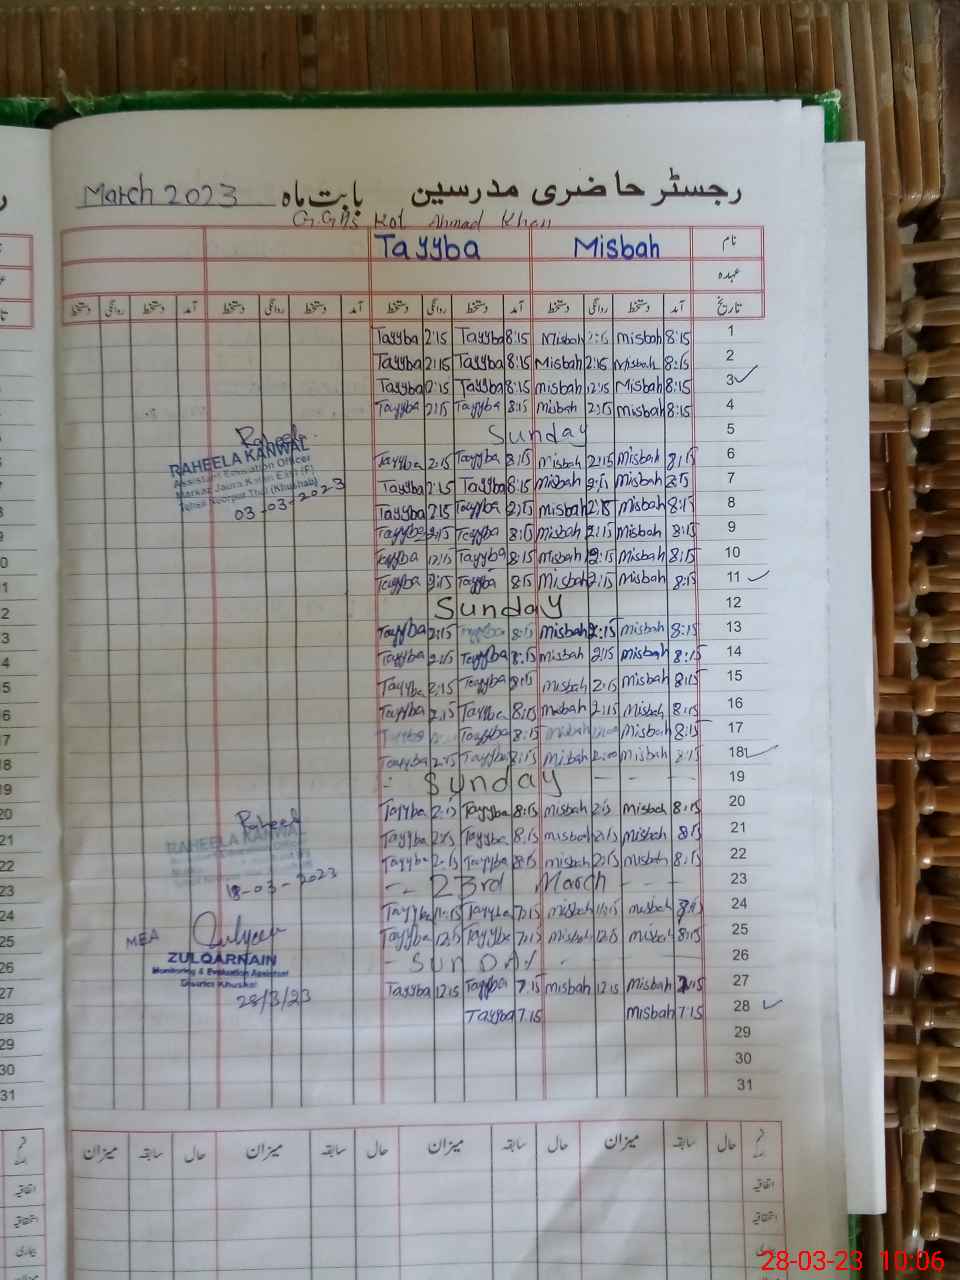 رجسٹر حاضری مدرسین بابت ماہ March 2023
Kot Ahmad Khan
نام Misbah Tayyba
عہدہ
تاریخ آمد دستخط روانگی دستخط آمد دستخط روانگی دستخط آمد دستخط روانگی دستخط آمد دستخط روانگی دستخط
1 8:15 Misbah 2:15 Misbah 8:15 Tayyba 2:15 Tayyba
2 8:15 Misbah 2:15 Misbah 8:15 Tayyba 2:15 Tayyba
3 8:15 Misbah 12:15 Misbah 8:15 Tayyba Tayyba
4 8:15 Misbah 2:15 Misbah 8:15 Tayyba 2:15 Tayyba
5 Sunday
6 8:15 Misbah 2:15 Misbah 8:15 Tayyba 2:15 Tayyba
7 8:15 Misbah 2:15 Misbah 8:15 Tayyba 2:15 Tayyba
8 8:15 Misbah 2:15 Misbah Tayyba 2:15 Tayyba
9 8:15 Misbah 2:15 Misbah 8:15 Tayyba 2:15 Tayyba
10 8:15 Misbah 2:15 Misbah 8:15 Tayyba 12:15 Tayyba
11 8:15 Misbah 2:15 Misbah 8:15 Tayyba 2:15 Tayyba
12 Sunday
13 8:15 Misbah 2:15 Misbah 8:15 Tayyba 2:15 Tayyba
14 8:15 Misbah 2:15 Misbah 8:15 Tayyba 2:15 Tayyba
15 8:15 Misbah 2:15 Misbah 8:15 Tayyba 2:15 Tayyba
16 8:15 Misbah 2:15 Misbah 8:15 Tayyba 2:15 Tayyba
17 8:15 Misbah Misbah 8:15 Tayyba Tayyba
18 8:15 Misbah 2:00 Misbah 8:15 Tayyba 2:15 Tayyba
19 Sunday
20 8:15 Misbah 2:15 Misbah 8:15 Tayyba 2:15 Tayyba
21 8:15 Misbah 2:15 Misbah 8:15 Tayyba 2:15 Tayyba
22 8:15 Misbah 2:15 Misbah 8:15 Tayyba 2:15 Tayyba
23 23rd March
24 Misbah Misbah 7:15 Tayyba Tayyba
25 8:15 Misbah 12:15 Misbah 7:15 Tayyba 12:15 Tayyba
26 SunDAy
27 7:15 Misbah 12:15 Misbah 7:15 Tayyba 12:15 Tayyba
28 7:15 Misbah 7:15 Tayyba
29
30
31
Raheela
RAHEELA KANWAL
Assistant Education Officer
Markaz Jaura Kalan (F)
Tehsil Noorpur Thal (Khushab)
03-03-2023
Raheela
RAHEELA KANWAL
18-03-2023
MEA
ZULQARNAIN
Monitoring & Evaluation Assistant
District Khushab
28/3/23
حال سابقہ میزان حال سابقہ میزان حال سابقہ میزان حال سابقہ میزان
اتفاقیہ
استحقاقیہ
بیماری
3
4
5
6
7
8
9
0
1
2
3
4
5
6
7
18
19
20
21
22
23
24
25
26
27
28
29
30
31
28-03-23 10:06